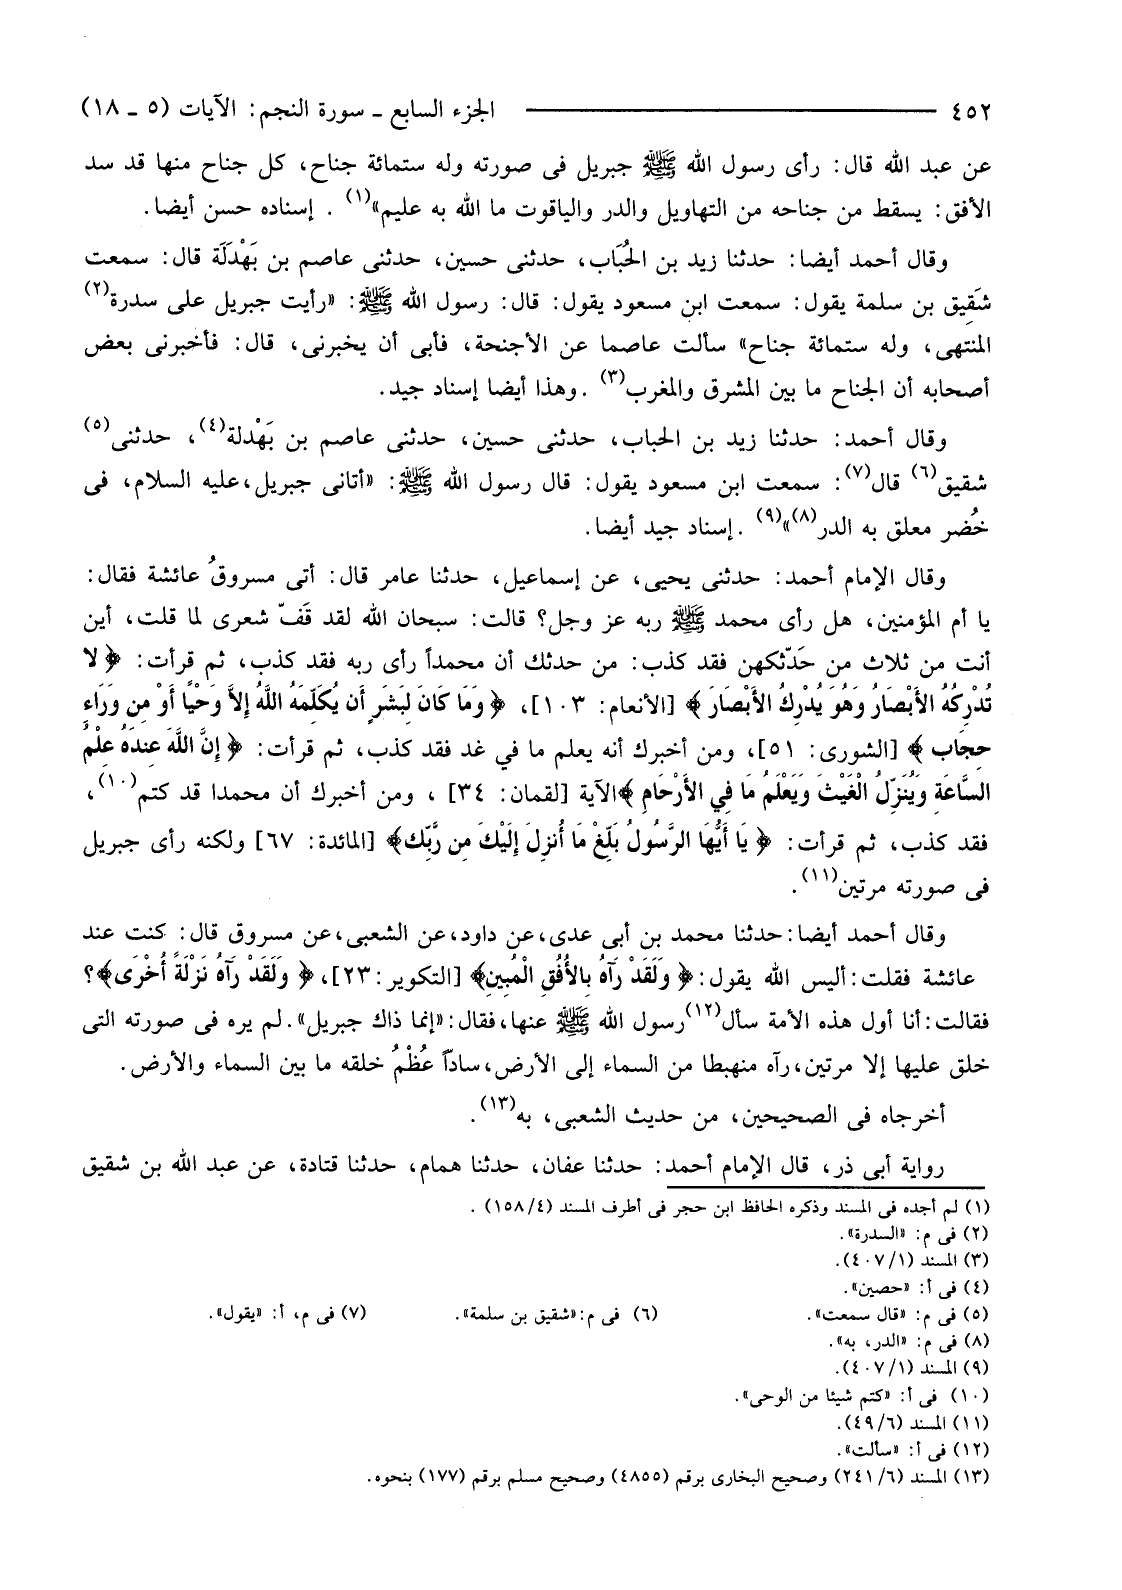 ٤٥٢ الجزء السابع ـ سورة النجم: الآيات (٥ ـ ١٨)
عن عبد الله قال: رأى رسول الله ﷺ جبريل فى صورته وله ستمائة جناح، كل جناح منها قد سد
الأفق: يسقط من جناحه من التهاويل والدر والياقوت ما الله به عليم»(١) . إسناده حسن أيضا.
وقال أحمد أيضا: حدثنا زيد بن الحُبَاب، حدثنى حسين، حدثنى عاصم بن بَهْدَلَة قال: سمعت
شَقِيق بن سلمة يقول: سمعت ابن مسعود يقول: قال: رسول الله ﷺ: «رأيت جبريل على سدرة(٢)
المنتهى، وله ستمائة جناح» سألت عاصما عن الأجنحة، فأبى أن يخبرنى، قال: فأخبرنى بعض
أصحابه أن الجناح ما بين المشرق والمغرب(٣) .وهذا أيضا إسناد جيد.
وقال أحمد: حدثنا زيد بن الحباب، حدثنى حسين، حدثنى عاصم بن بَهْدلة(٤)، حدثنى(٥)
شقيق(٦) قال(٧): سمعت ابن مسعود يقول: قال رسول الله ﷺ: «أتانى جبريل،عليه السلام، فى
خُضر معلق به الدر(٨)»(٩) .إسناد جيد أيضا.
وقال الإمام أحمد: حدثنى يحيى، عن إسماعيل، حدثنا عامر قال: أتى مسروقُ عائشة فقال:
يا أم المؤمنين، هل رأى محمد ﷺ ربه عز وجل؟ قالت: سبحان الله لقد قَفّ شعرى لما قلت، أين
أنت من ثلاث من حَدّثكهن فقد كذب: من حدثك أن محمداً رأى ربه فقد كذب، ثم قرأت: ﴿ لا
تُدْرِكُهُ الأَبْصَارُ وَهُوَ يُدْرِكُ الأَبْصَارَ ﴾ [الأنعام: ١٠٣]، ﴿ وَمَا كَانَ لِبَشَرٍ أَن يُكَلِّمَهُ اللَّهُ إِلاَّ وَحْيًا أَوْ مِن وَرَاءِ
حِجَاب ﴾ [الشورى: ٥١]، ومن أخبرك أنه يعلم ما في غد فقد كذب، ثم قرأت: ﴿ إِنَّ اللَّهَ عِندَهُ عِلْمُ
السَّاعَةِ وَيُنَزِّلُ الْغَيْثَ وَيَعْلَمُ مَا فِي الأَرْحَامِ ﴾الآية [لقمان: ٣٤] ، ومن أخبرك أن محمدا قد كتم(١٠)،
فقد كذب، ثم قرأت: ﴿ يَا أَيُّهَا الرَّسُولُ بَلِّغْ مَا أُنزِلَ إِلَيْكَ مِن رَّبِّك﴾ [المائدة: ٦٧] ولكنه رأى جبريل
فى صورته مرتين(١١).
وقال أحمد أيضا:حدثنا محمد بن أبى عدى،عن داود،عن الشعبى،عن مسروق قال: كنت عند
عائشة فقلت:أليس الله يقول:﴿ وَلَقَدْ رَآهُ بِالأُفُقِ الْمُبِينِ﴾ [التكوير:٢٣]،﴿ وَلَقَدْ رَآهُ نَزْلَةً أُخْرَى﴾؟
فقالت:أنا أول هذه الأمة سأل(١٢)رسول الله ﷺ عنها،فقال:«إنما ذاك جبريل».لم يره فى صورته التى
خلق عليها إلا مرتين،رآه منهبطا من السماء إلى الأرض،سادّاً عُظْمُ خلقه ما بين السماء والأرض.
أخرجاه فى الصحيحين، من حديث الشعبى، به(١٣).
رواية أبى ذر، قال الإمام أحمد: حدثنا عفان، حدثنا همام، حدثنا قتادة، عن عبد الله بن شقيق
(١) لم أجده فى المسند وذكره الحافظ ابن حجر فى أطرف المسند (١٥٨/٤) .
(٢) فى م: «السدرة».
(٣) المسند (٤٠٧/١).
(٤) فى أ: «حصين».
(٥) فى م: «قال سمعت». (٦) فى م:«شقيق بن سلمة». (٧) فى م، أ: «يقول».
(٨) فى م: «الدر، به».
(٩) المسند (٤٠٧/١).
(١٠) فى أ: «كتم شيئا من الوحى».
(١١) المسند (٤٩/٦).
(١٢) فى أ: «سألت».
(١٣) المسند (٢٤١/٦) وصحيح البخارى برقم (٤٨٥٥) وصحيح مسلم برقم (١٧٧) بنحوه.